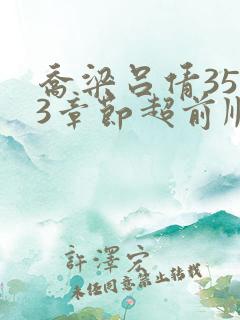 乔梁吕倩35
3章节超前
許澤宏
未经同意禁止转载